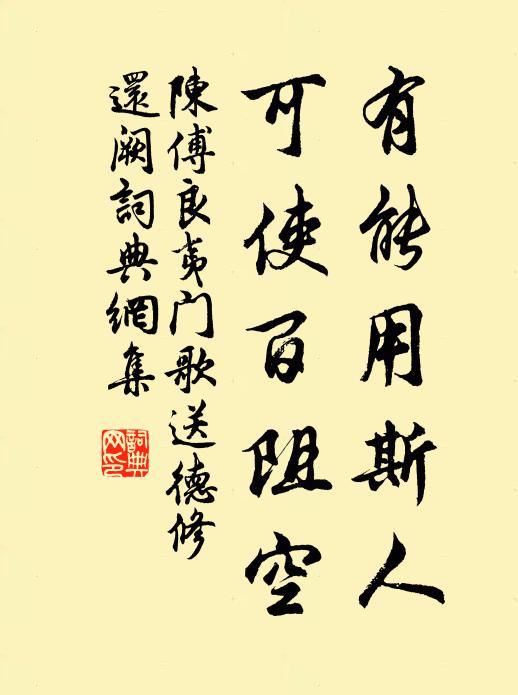 有能用斯人
可使百阻空
陳傅良夷门歌送德修
還阙詞典網集
詞典网印